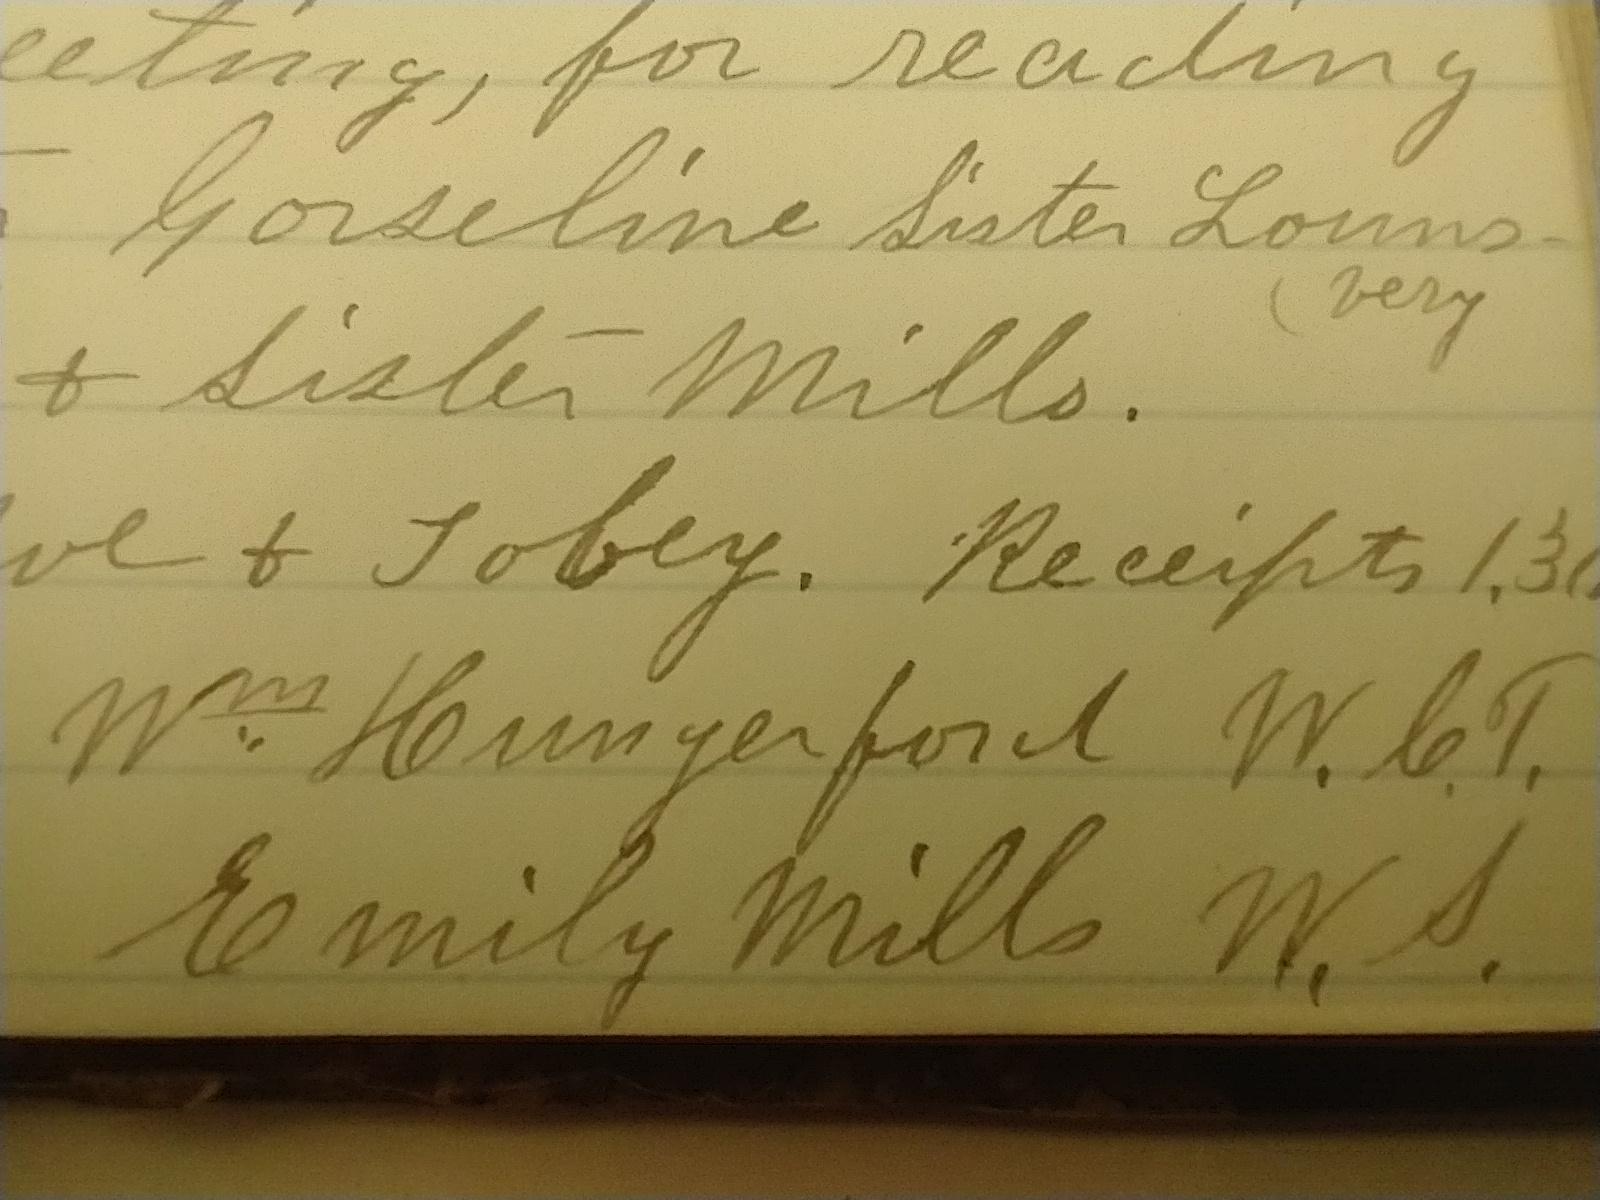 eeting, for reading
Gorseline Sister Louns-
(very
& Sister Mills.
ve & Tobey. Receipts 1.30
Wm. Hungerford W.C.T.
Emily Mills W.S.